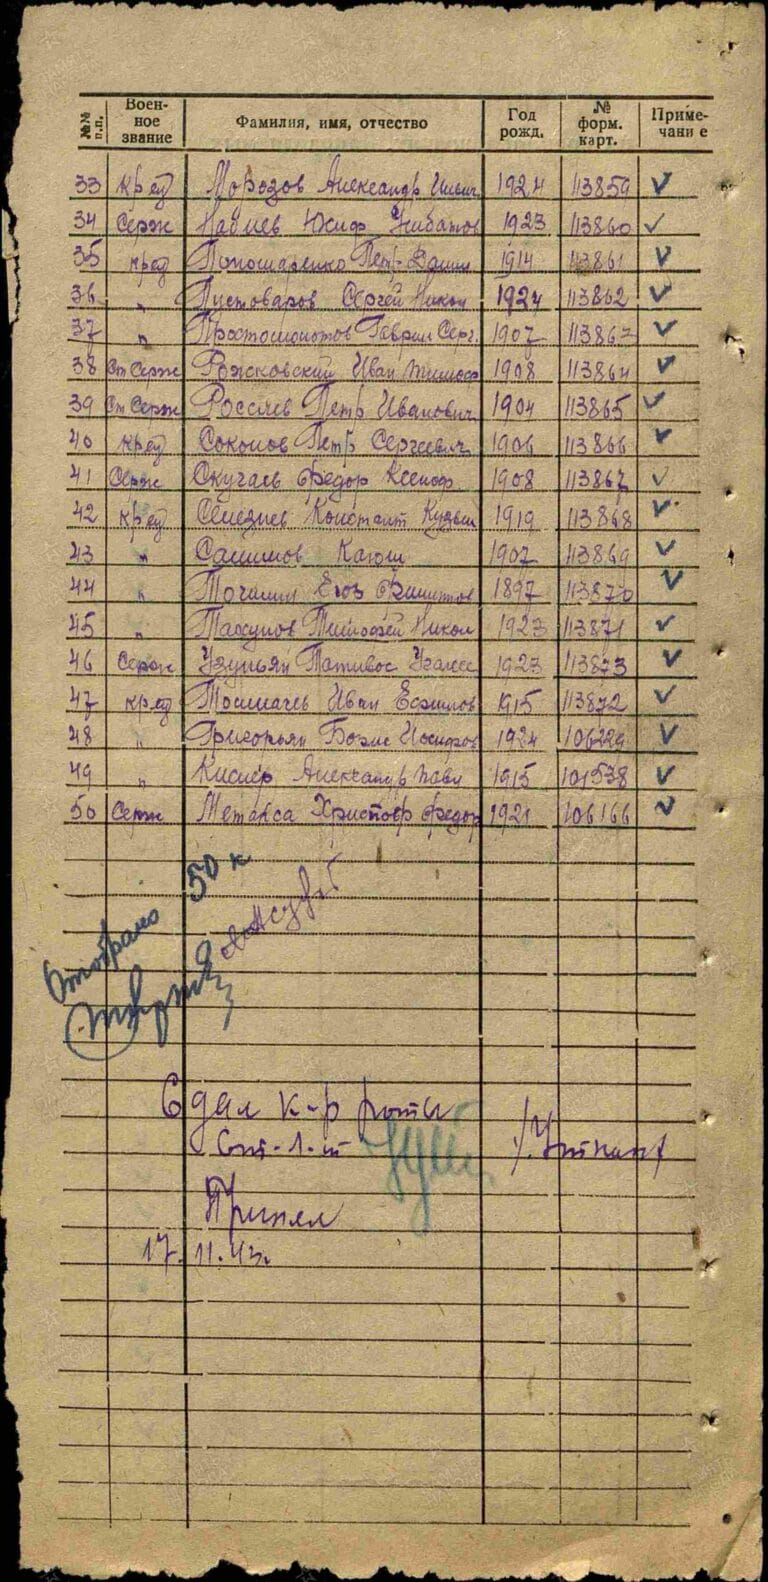 №№ п.п. Воен- ное звание Фамилия, имя, отчество Год рожд. № форм. карт. Приме- чание
33 кр-ец Морозов Александр Ильич 1924 113859 ✓
34 Серж Набиев Юсиф 1923 113860 ✓
35 кр-ец Пономаренко Петр Данил 1914 113861 ✓
36 " Пустоваров Сергей Никол 1924 113862 ✓
37 " Простомолотов Гаврил Серг. 1907 113863 ✓
38 Ст Серж Рожковский Иван Тимоф 1908 113864 ✓
39 Ст Серж Росляев Петр Иванович 1904 113865 ✓
40 кр-ец Соколов Петр Сергеевич 1906 113866 ✓
41 Серж Скучаев Федор Ксеноф 1908 113867 ✓
42 кр-ец Селезнев Константт Кузьм 1919 113868 ✓
43 " Салимов Каюм 1907 113869 ✓
44 " Точилин Егор Филиппов 1897 113870 ✓
45 " Тимофей Никол 1923 113871 ✓
46 Серж Узуньян 1923 113873 ✓
47 кр-ец Толмачев Иван Ефимов 1915 113872 ✓
48 " Григорьян Борис Иосифов 1924 106229 ✓
49 " Кислер Александр Павл 1915 101538 ✓
50 Серж Метакса Христофр Федор 1921 106166 ✓
Отобрано 50 к
Сдал к-р роты
Ст-л-т /Уткин/
Принял
17.11.43г.